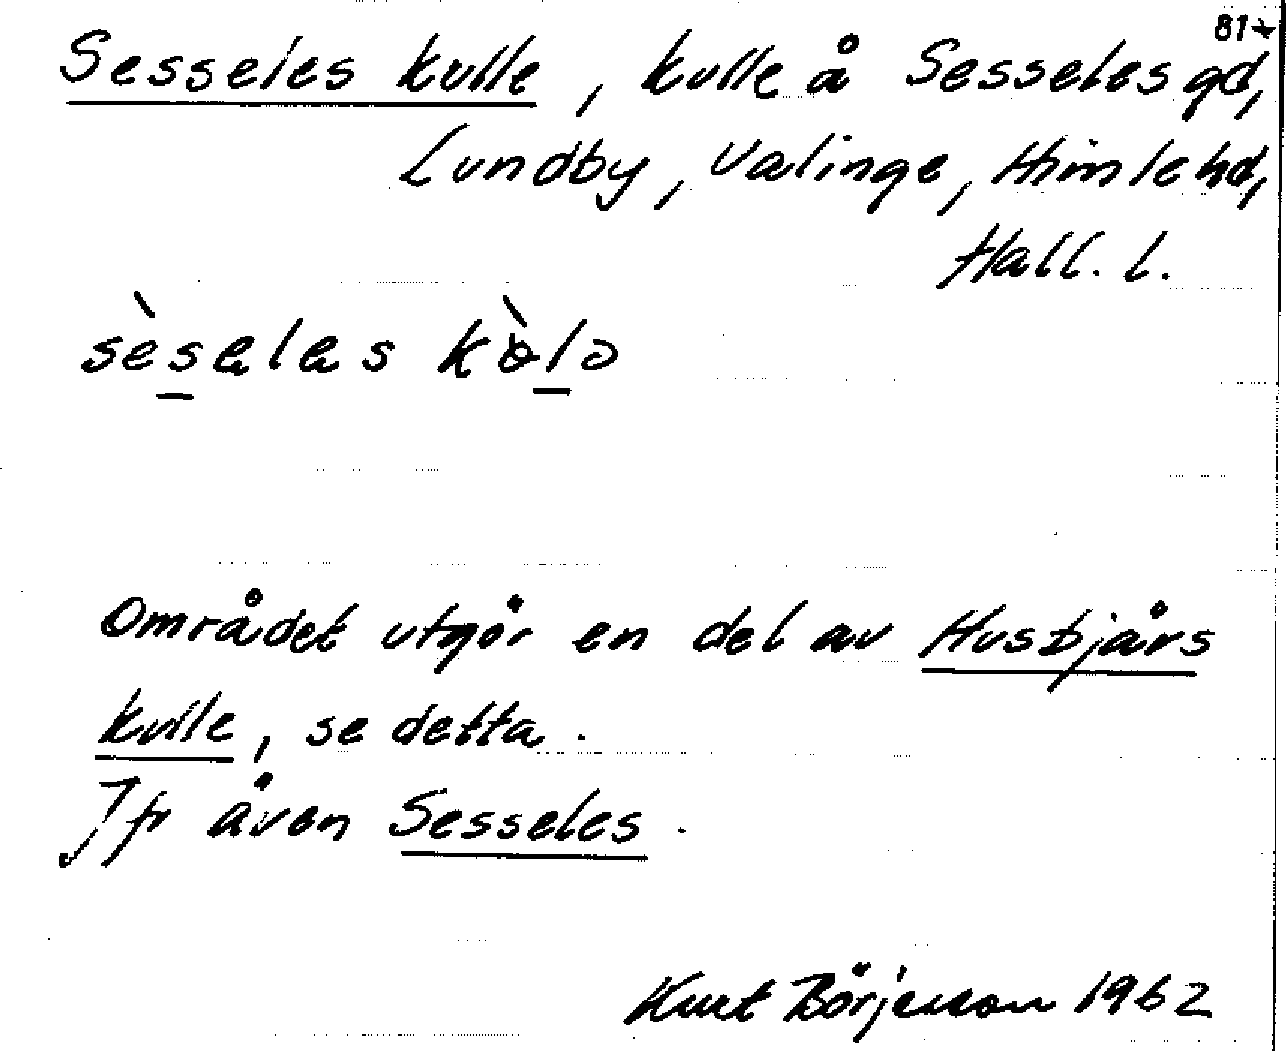 81
Sesseles kulle, kulle å Sesseles gd,
Lundby, Valinge, Himle hd,
Hall. l.
sèsalas kòlə
Området utgör en del av Husbjärs
kulle, se detta.
Jfr även Sesseles.
Kurt Börjesson 1962